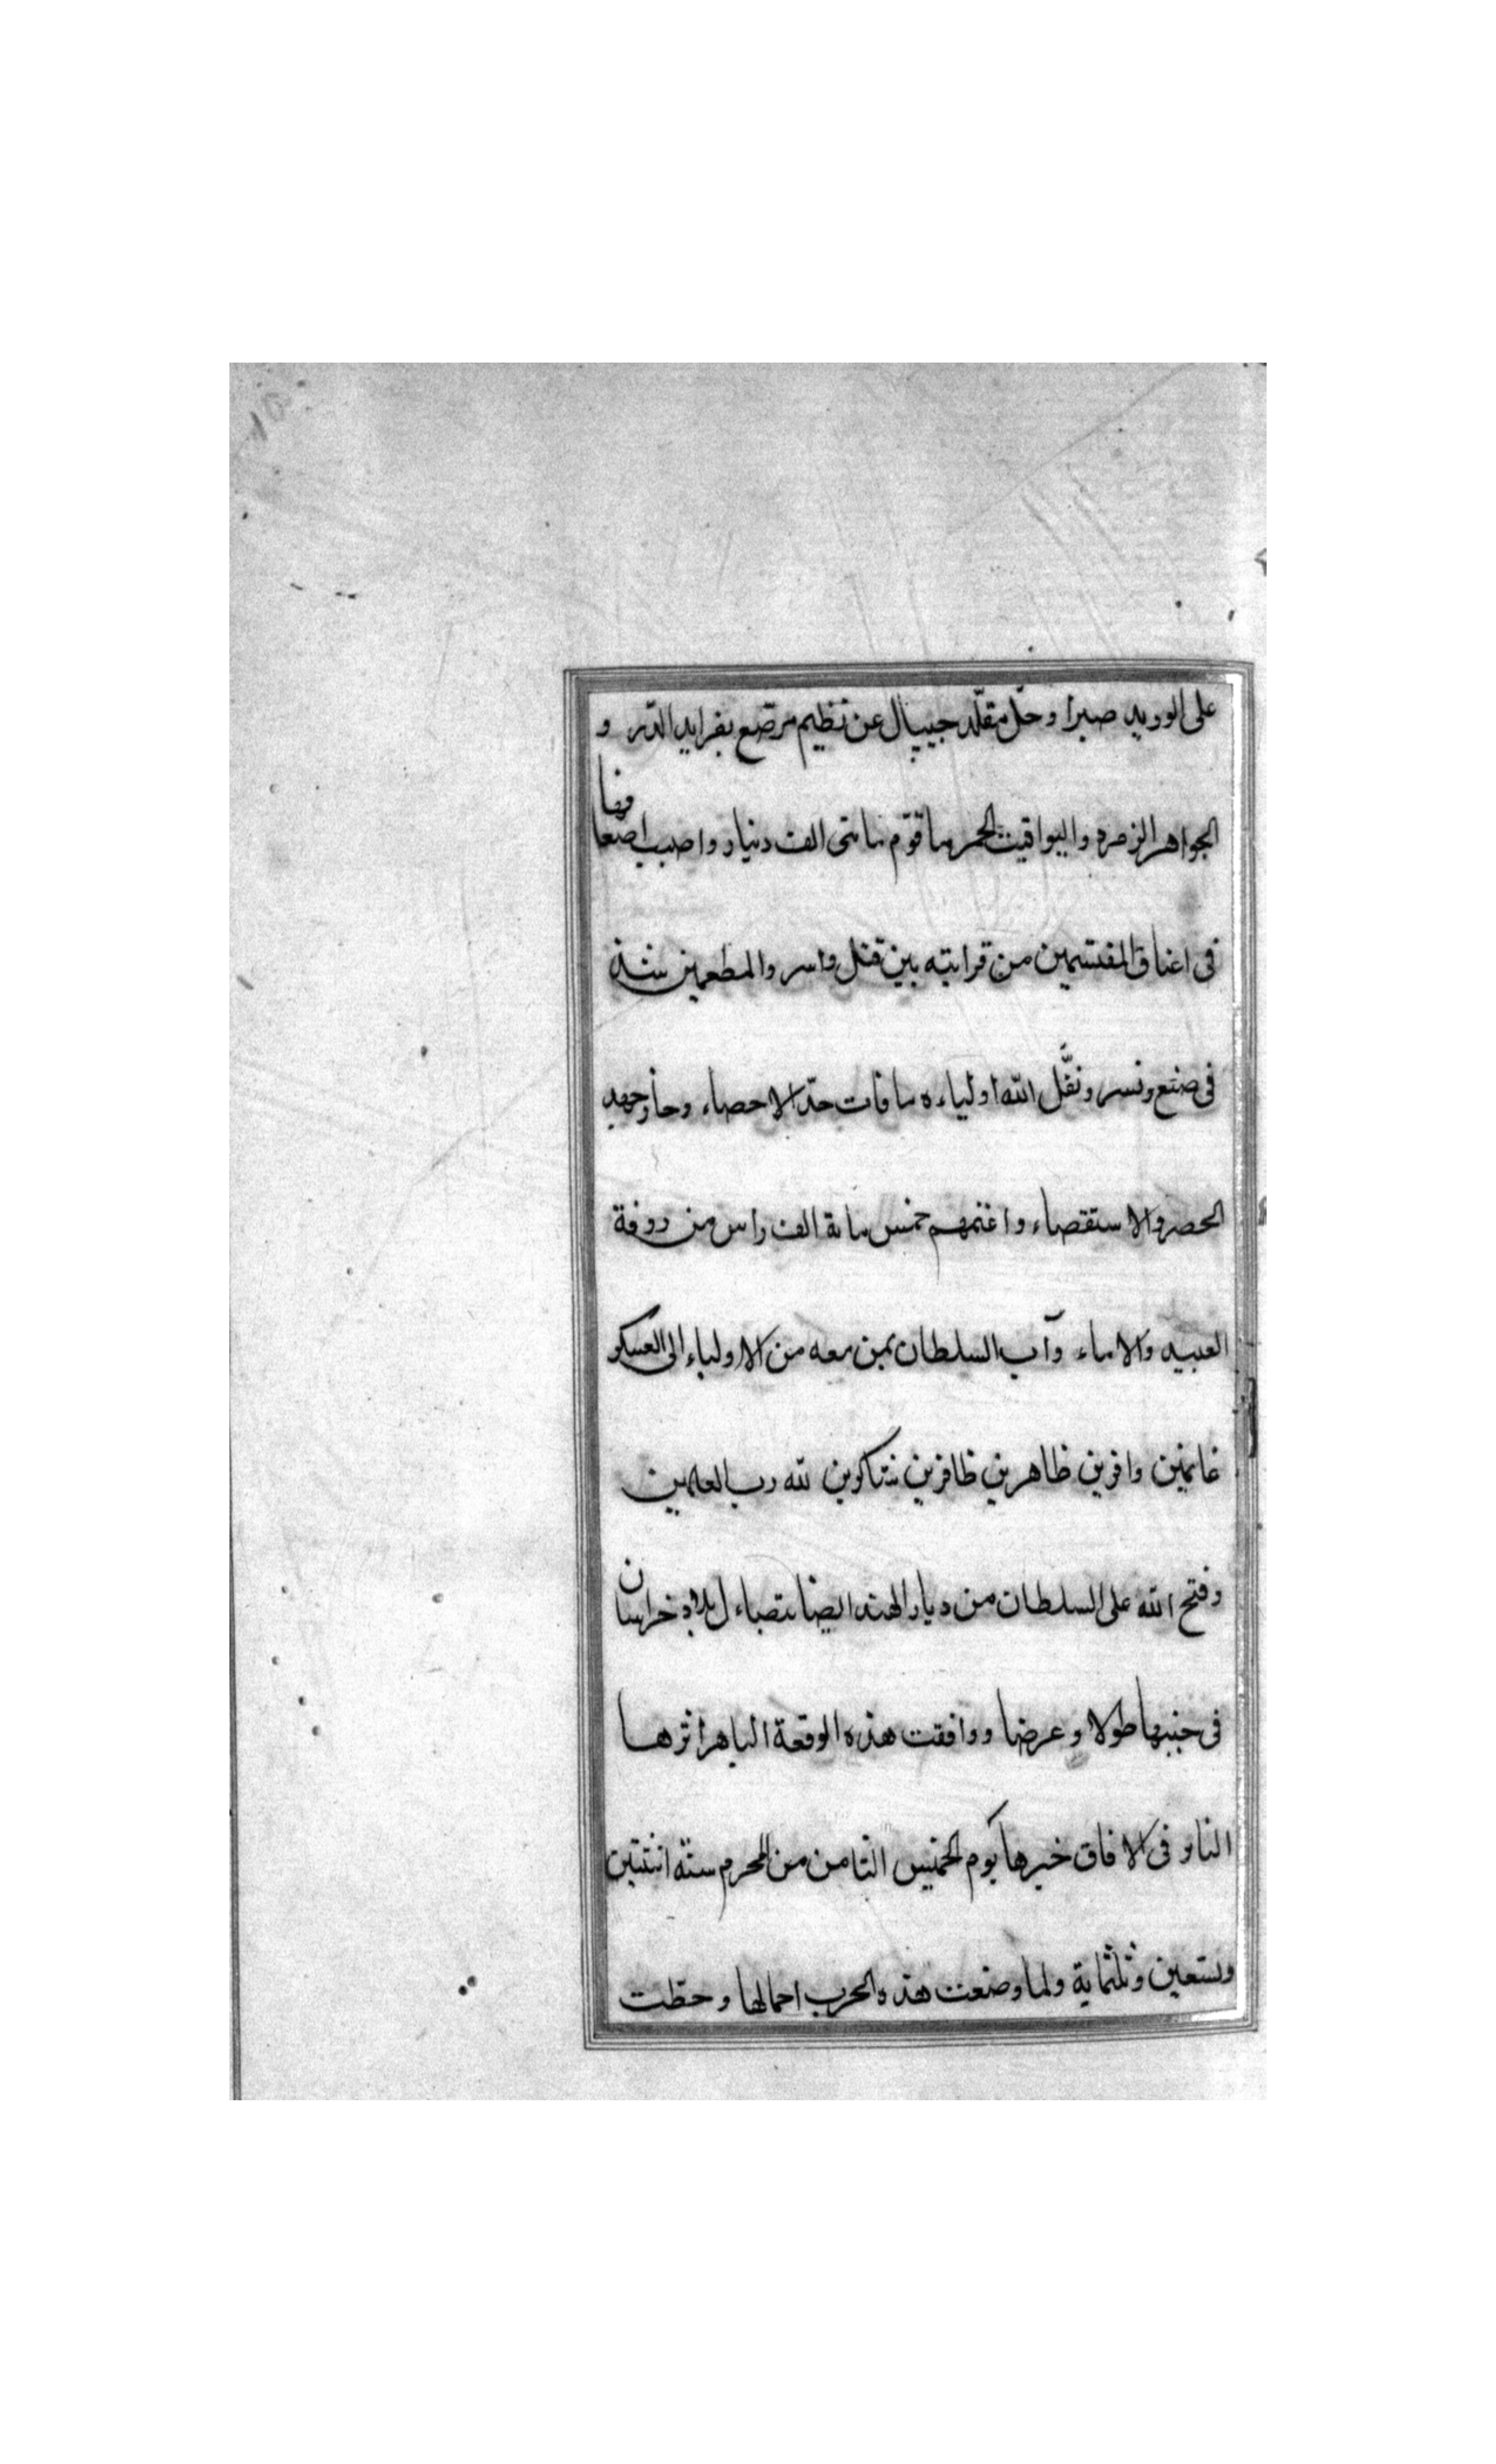 على الوريد صبرا وحلّ مقلّد جيپال عن نظيم مرصّع بفرايد الدّر و
الجواهر الزمرد واليواقيت الحمر ما قوّم بمائتى الف دينار واصيب اضعافها
فى اعناق المقتسمين من قرابته بين قتل واسر والمطعمين
فى ضبع ونسر ونفّل الله اولياءه ما فات حدّ الاحصاء وجاز جهد
الحصر والاستقصاء واغنمهم خمس ماية الف راس من روفة
العبيد والاماء وآب السلطان بمن معه من الاولياء الى العسكر
غانمين وافرين ظاهرين ظافرين شاكرين لله رب العلمين
وفتح الله على السلطان من ديار الهند ايضا تتضاءل بلاد خراسان
فى جنبها طولا وعرضا ووافقت هذه الوقعة الباهر اثرها
الناير فى الافاق خبرها يوم الخميس الثامن من المحرم سنة اثنتين
وتسعين وثلثماية ولما وضعت هذه الحرب احمالها وحطّت